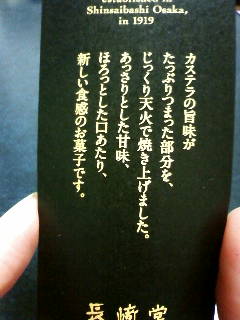 established in
Shinsaibashi Osaka,
in 1919
カステラの旨味が
たっぷりつまった部分を、
じっくり天火で焼き上げました。
あっさりとした甘味、
ほろっとした口あたり、
新しい食感のお菓子です。
長﨑堂